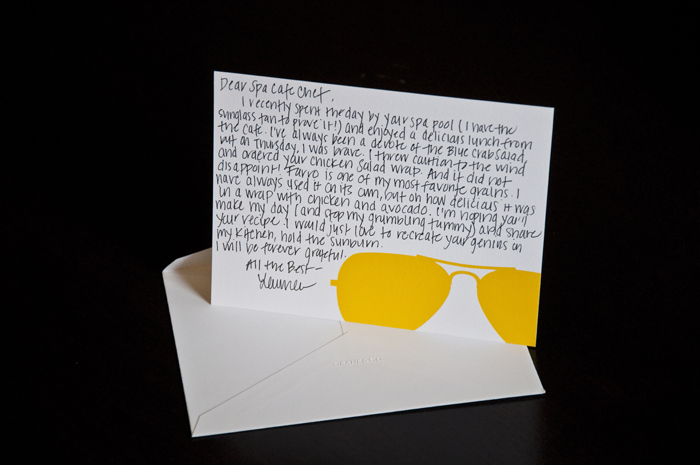 Dear Spa Cafe Chef,
I recently spent the day by your spa pool (I have the
sunglass tan to prove it!) and enjoyed a delicious lunch from
the cafe. I've always been a devote of the Blue Crab Salad,
but on Thursday, I was brave. I threw caution to the wind
and ordered your chicken salad wrap. And it did not
disappoint! Farro is one of my most favorite grains. I
have always used it on its own, but oh how delicious it was
in a wrap with chicken and avocado. I'm hoping you'll
make my day (and stop my grumbling tummy) and share
your recipe. I would just love to recreate your genius in
my kitchen, hold the sunburn.
I will be forever grateful.
All the Best—